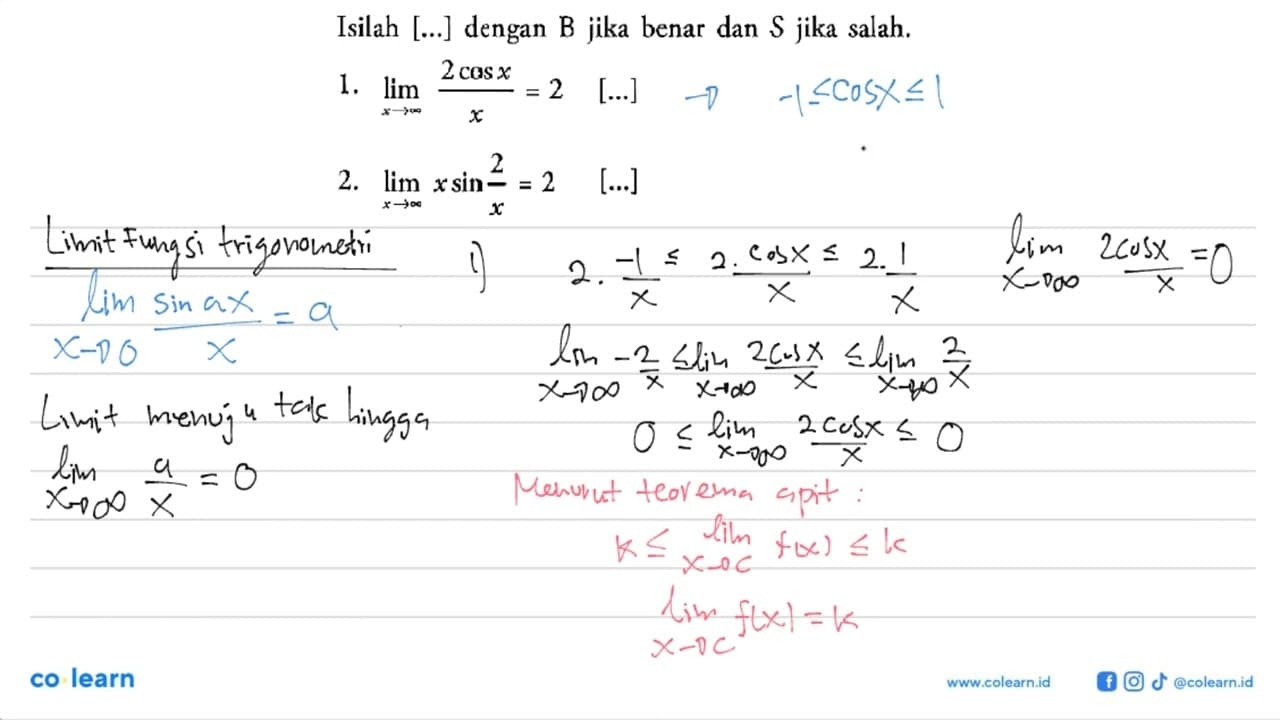 Isilah [...] dengan B jika benar dan S jika salah.
1. lim x→∞ 2 cos x / x = 2 [...] → -1 ≤ cos x ≤ 1
2. lim x→∞ x sin 2/x = 2 [...]
Limit Fungsi trigonometri
lim x→0 sin ax / x = a
Limit menuju tak hingga
lim x→∞ a/x = 0
1) 2. -1/x ≤ 2. cos x / x ≤ 2. 1/x
lim x→∞ -2/x ≤ lim x→∞ 2 cos x / x ≤ lim x→∞ 2/x
0 ≤ lim x→∞ 2 cos x / x ≤ 0
Menurut teorema apit :
k ≤ lim x→c f(x) ≤ k
lim x→c f(x) = k
lim x→∞ 2 cos x / x = 0
co learn
www.colearn.id
@colearn.id